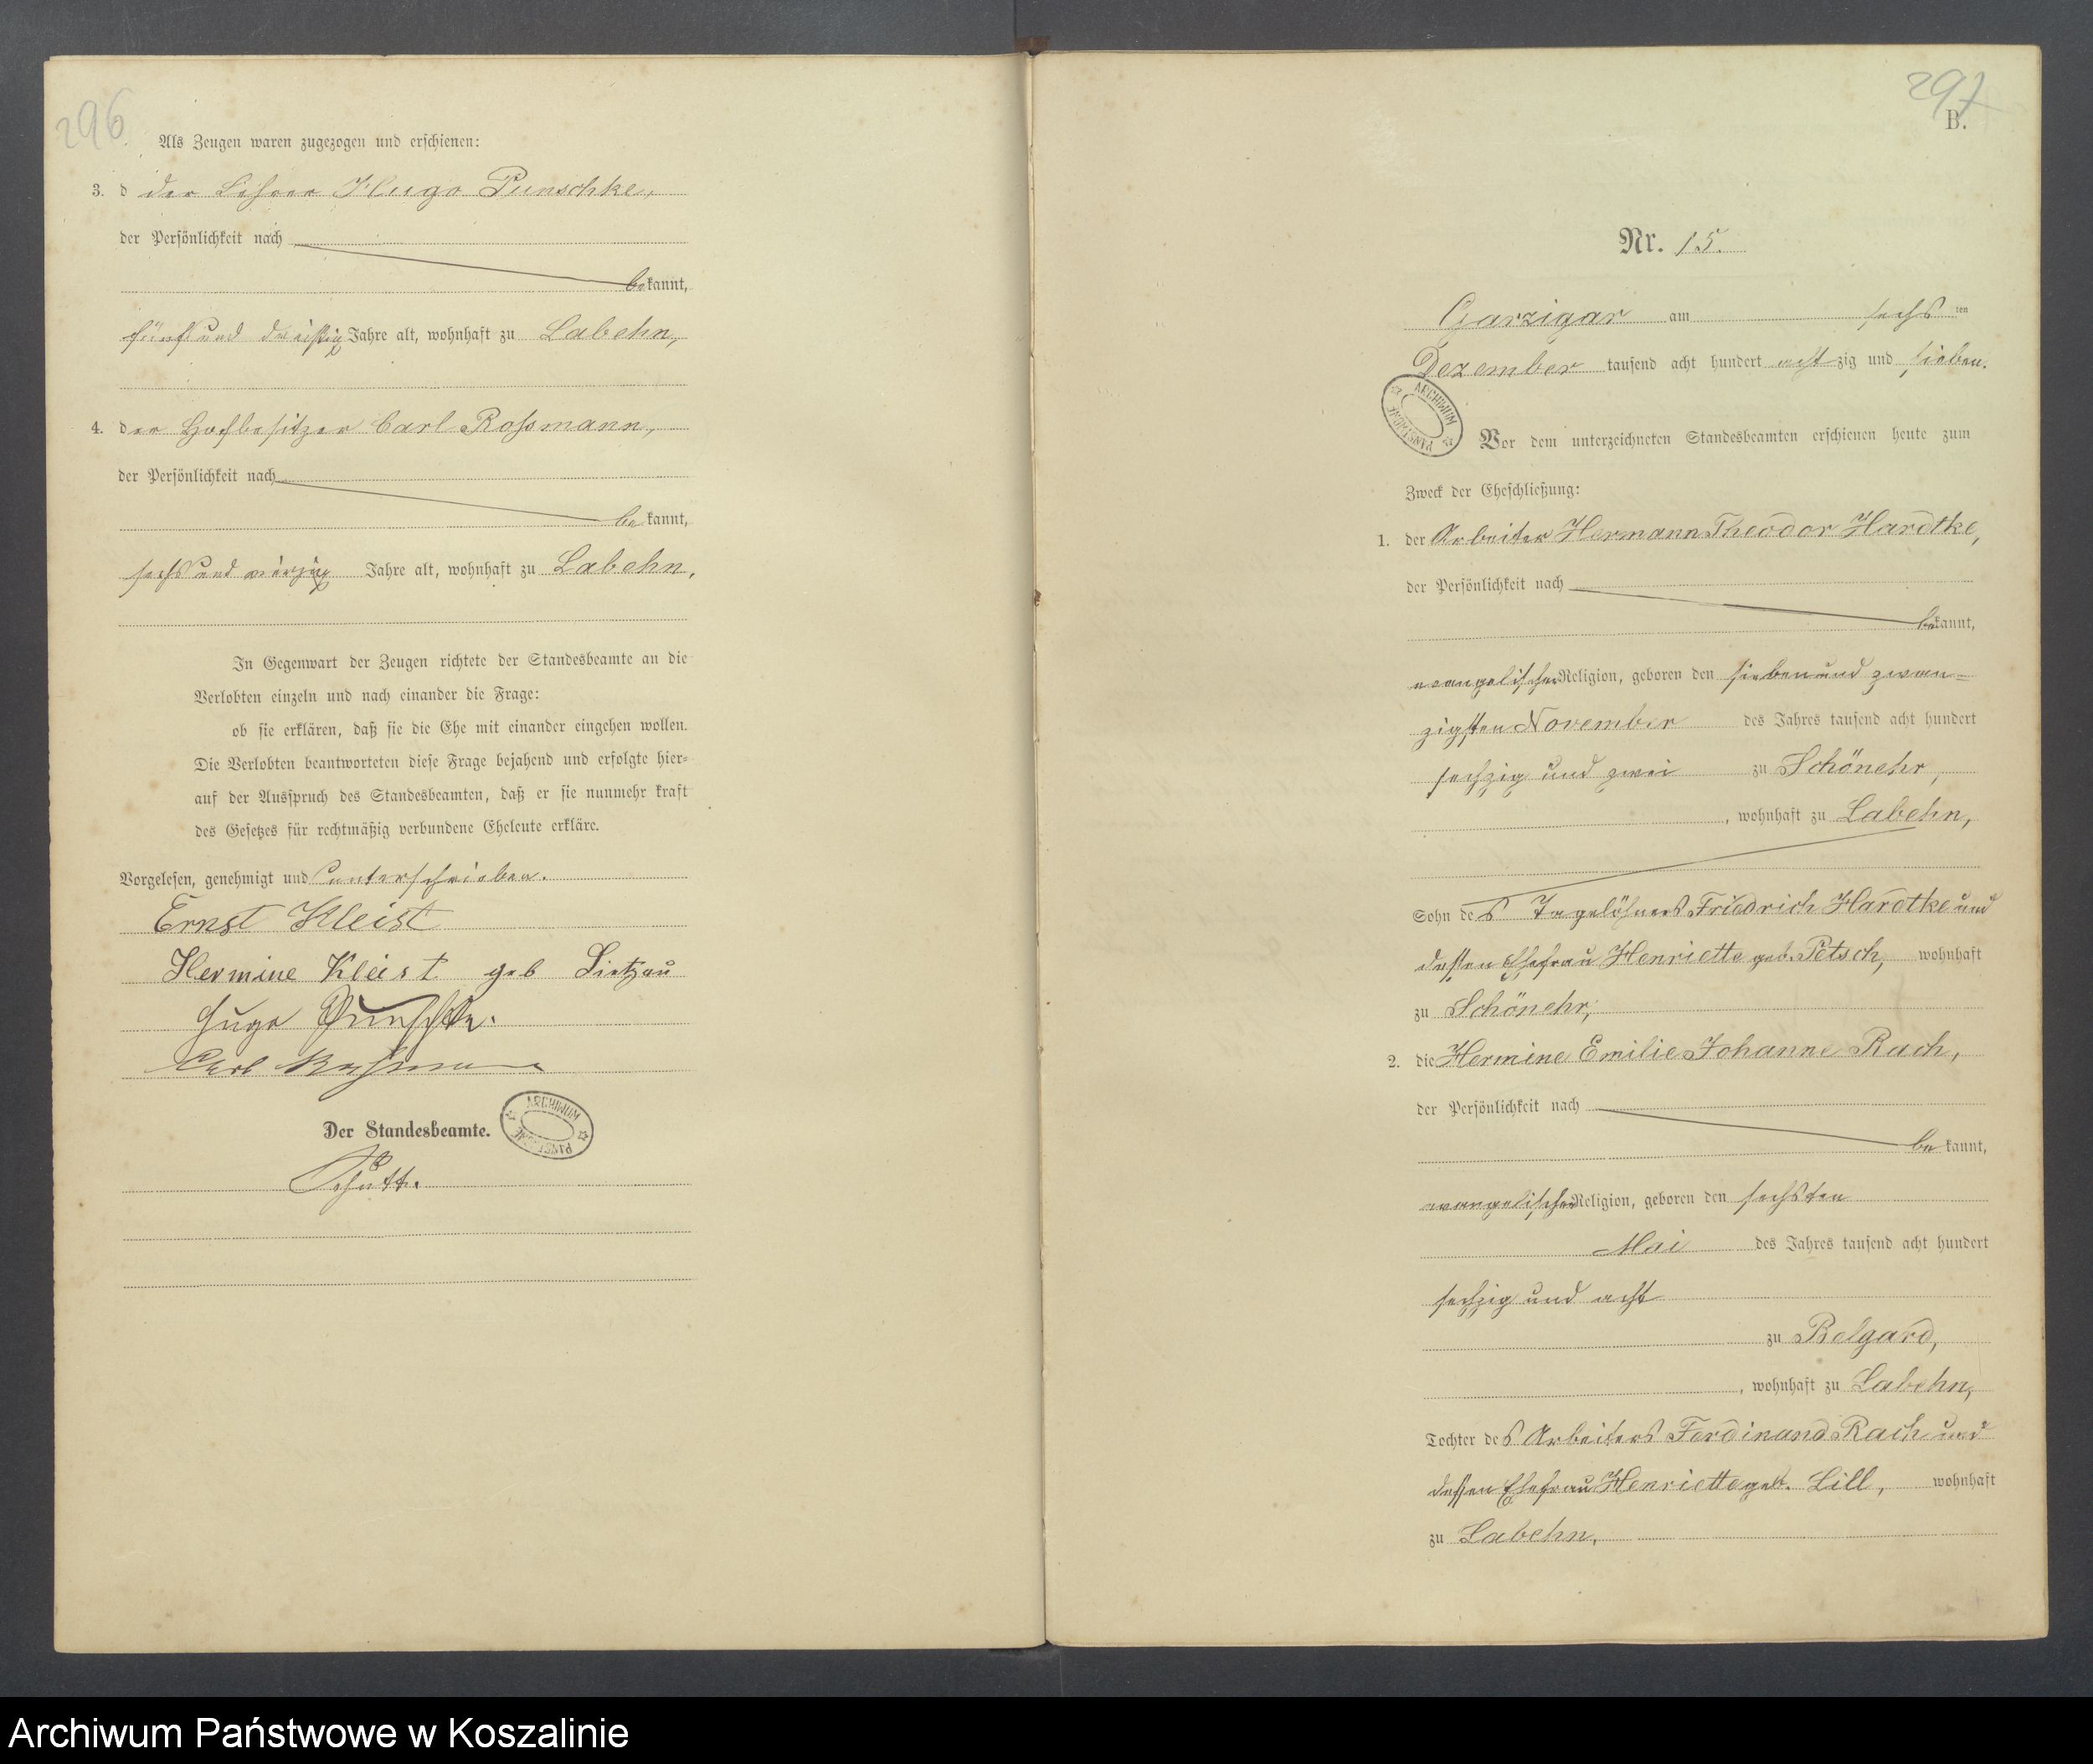 296
Als Zeugen waren zugezogen und erschienen:
3. d der Lehrer Hugo Punschke,
der Persönlichkeit nach
bekannt,
fünf und dreißig Jahre alt, wohnhaft zu Labehn,
4. der Hofbesitzer Carl Rossmann,
der Persönlichkeit nach
bekannt,
sechs und vierzig Jahre alt, wohnhaft zu Labehn,
In Gegenwart der Zeugen richtete der Standesbeamte an die
Verlobten einzeln und nach einander die Frage:
ob sie erklären, daß sie die Ehe mit einander eingehen wollen.
Die Verlobten beantworteten diese Frage bejahend und erfolgte hier-
auf der Ausspruch des Standesbeamten, daß er sie nunmehr kraft
des Gesetzes für rechtmäßig verbundene Eheleute erkläre.
Vorgelesen, genehmigt und unterschrieben.
Ernst Kleist
Hermine Kleist geb Lietzau
Hugo Punschke.
Carl Rossmann
Der Standesbeamte.
ARCHIWUM PAŃSTWOWE
297
B.
Nr. 15.
Garzigar am sechsten
Dezember tausend acht hundert achtzig und sieben.
ARCHIWUM PAŃSTWOWE
Vor dem unterzeichneten Standesbeamten erschienen heute zum
Zweck der Eheschließung:
1. der Arbeiter Hermann Theodor Hardtke,
der Persönlichkeit nach
bekannt,
evangelischer Religion, geboren den sieben und zwan-
zigsten November des Jahres tausend acht hundert
sechzig und zwei zu Schönehr,
, wohnhaft zu Labehn,
Sohn des Tagelöhners Friedrich Hardtke und
dessen Ehefrau Henriette geb. Petsch, wohnhaft
zu Schönehr;
2. die Hermine Emilie Johanne Rach,
der Persönlichkeit nach
bekannt,
evangelischer Religion, geboren den sechsten
Mai des Jahres tausend acht hundert
sechzig und acht
zu Belgard,
, wohnhaft zu Labehn,
Tochter des Arbeiters Ferdinand Rach und
dessen Ehefrau Henriette geb. Lill, wohnhaft
zu Labehn,
Archiwum Państwowe w Koszalinie